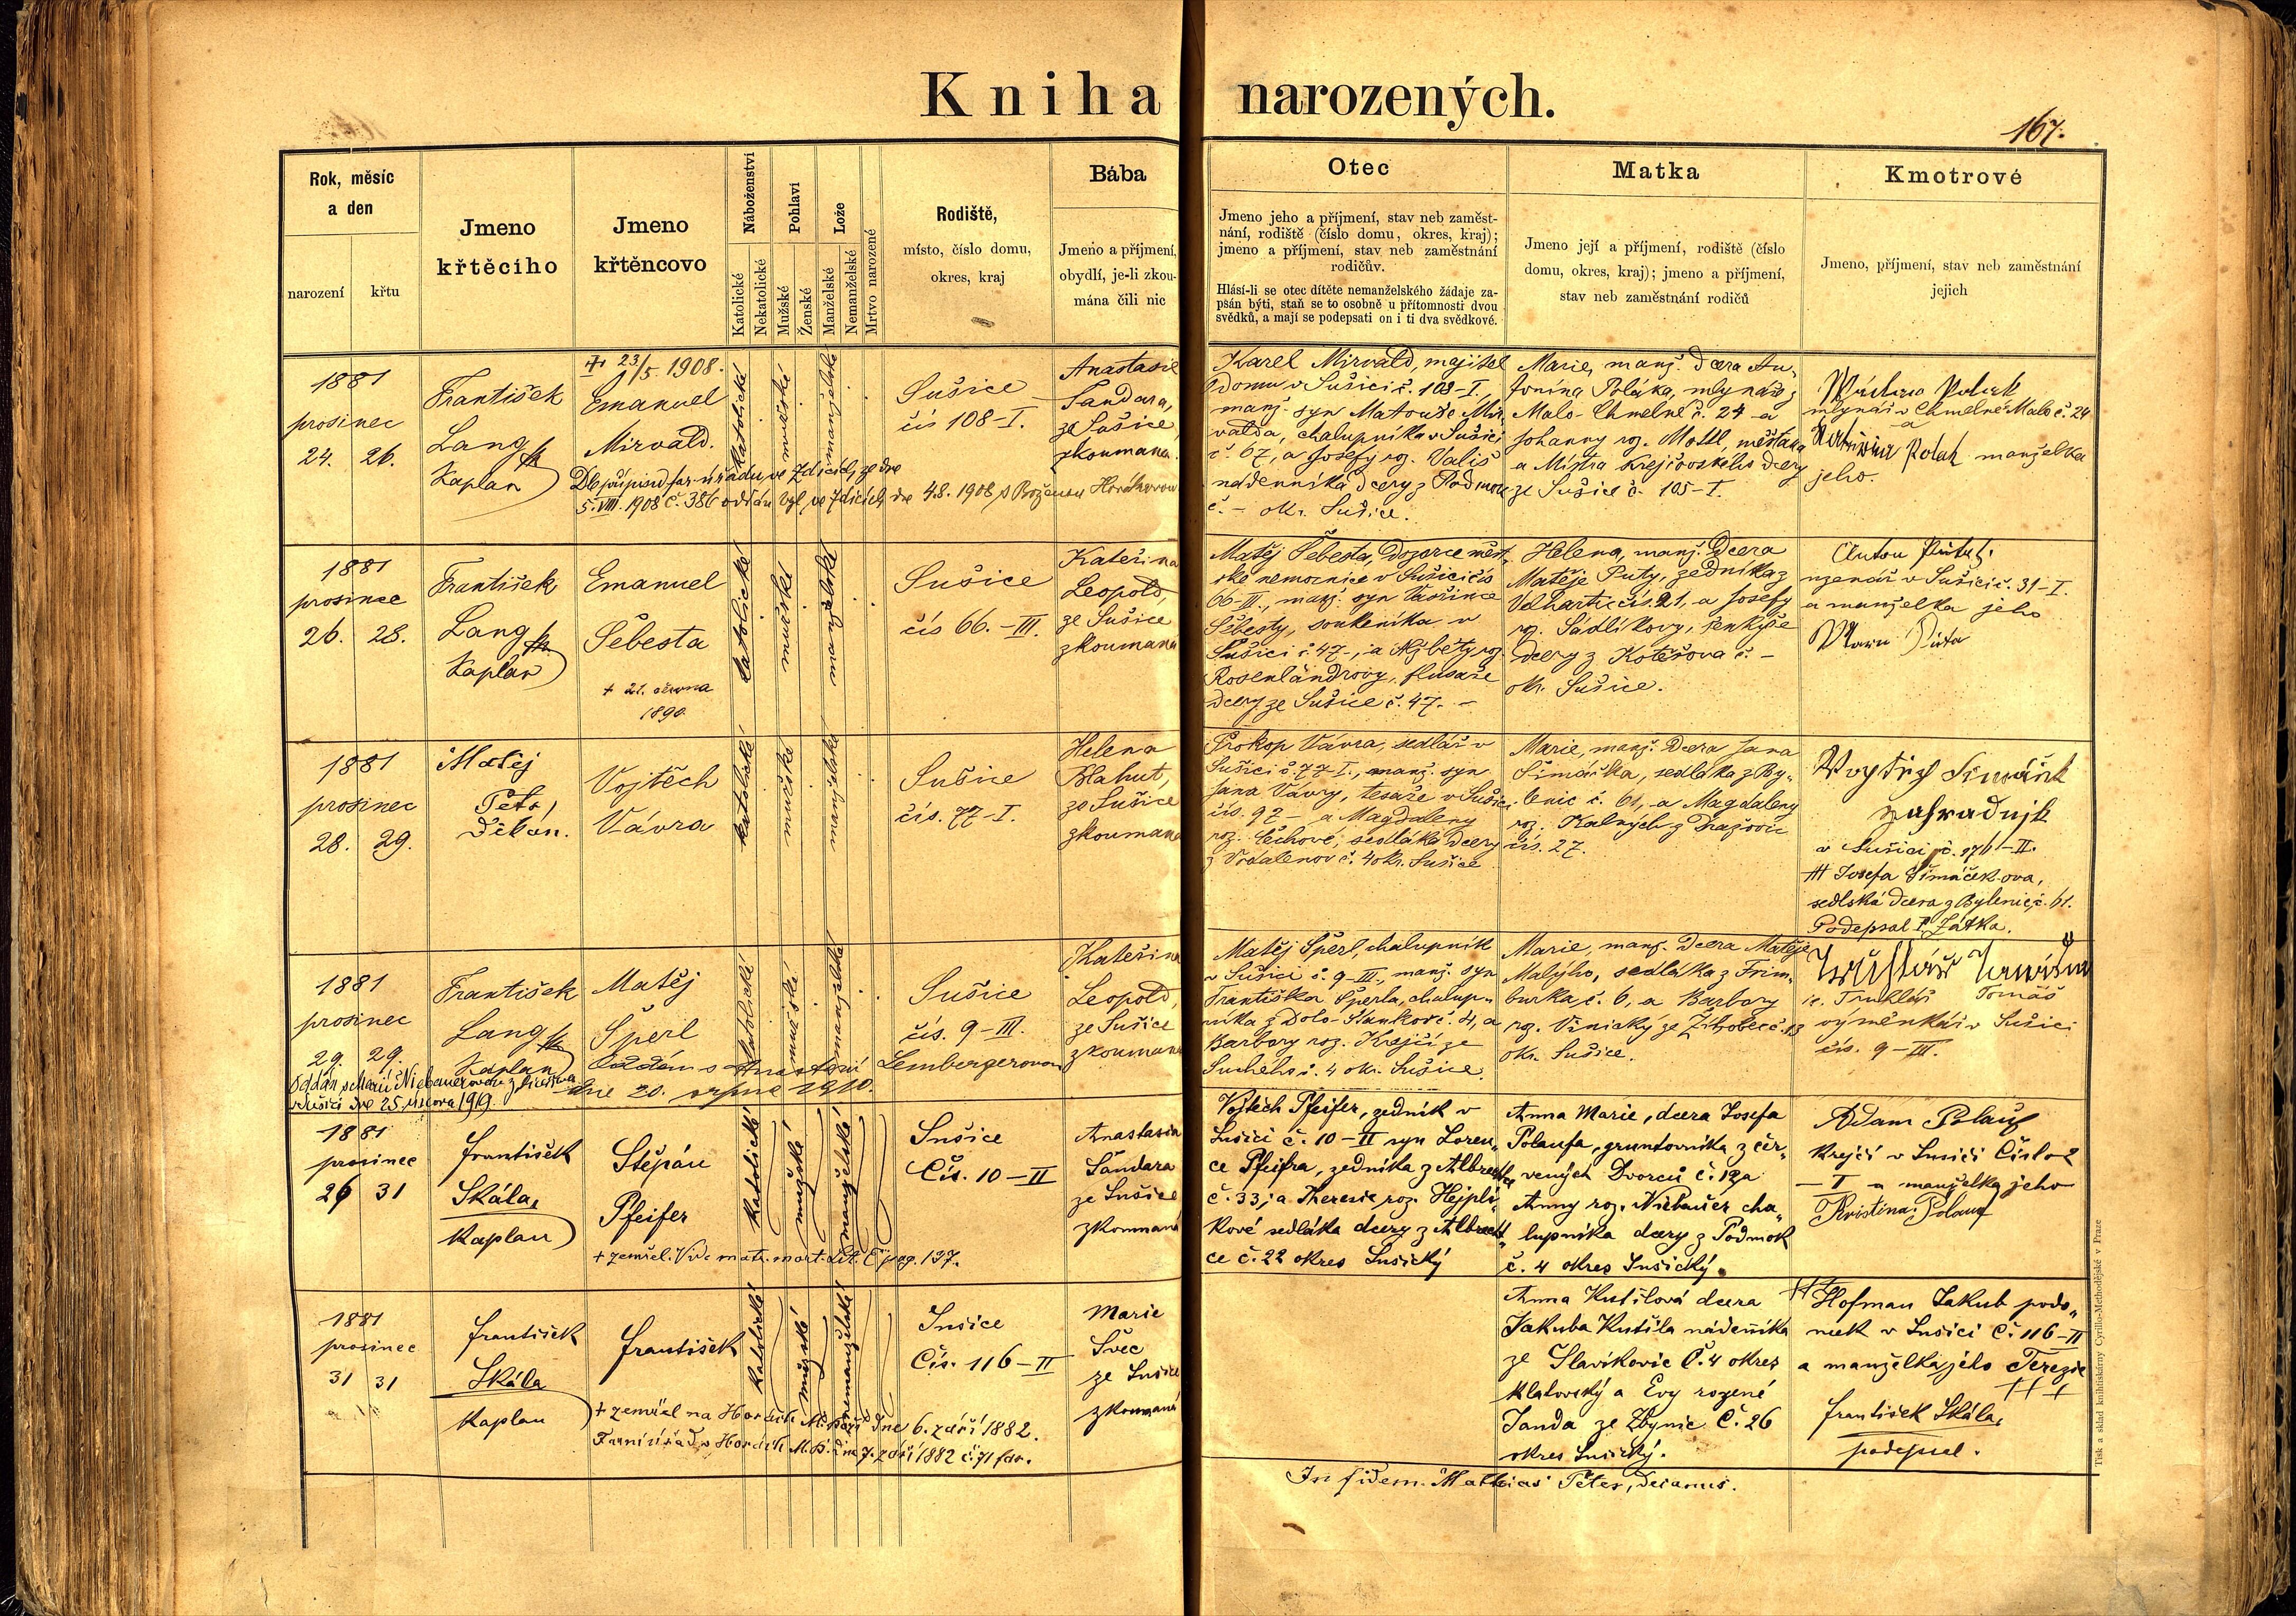 Kniha narozených.
167.
Rok, měsíc
a den
narození
křtu
Jmeno
křtěcího
Jmeno
křtěncovo
Náboženství
Katolické
Nekatolické
Pohlaví
Mužské
Ženské
Lože
Manželské
Nemanželské
Mrtvo narozené
Rodiště,
místo, číslo domu,
okres, kraj
Bába
Jmeno a příjmení,
obydlí, je-li zkou-
mána čili nic
Otec
Jmeno jeho a příjmení, stav neb zaměst-
nání, rodiště (číslo domu, okres, kraj);
jmeno a příjmení, stav neb zaměstnání
rodičův.
Hlásí-li se otec dítěte nemanželského žádaje za-
psán býti, staň se to osobně u přítomnosti dvou
svědků, a mají se podepsati on i ti dva svědkové.
Matka
Jmeno její a příjmení, rodiště (číslo
domu, okres, kraj); jmeno a příjmení,
stav neb zaměstnání rodičů
Kmotrové
Jmeno, příjmení, stav neb zaměstnání
jejich
1881
prosinec
24. 26.
František
Lang
Kaplan
23/5 1908.
Emanuel
Mirvald.
katolické
mužské
manželské
Sušice
čís 108-I.
Anastasie
Šandara,
ze Sušice,
zkoumana.
5. VIII. 1908 č. 386 oddán byl ve Zdicích dne 4.8. 1908 s Boženou Horákovou
Karel Mirvald, majitel
domu v Sušici č. 108-I.,
manž. syn Matouše Mir
valda, chalupníka v Sušici
č. 67, a Josefy roz. Vališ
nádenníka dcery z Podmok
č. - okr. Sušice.
Marie, manž. dcera An-
tonína Poláka, mlynáře z
Malo-Chmelné č. 24 a
Johanny roz. Mottl, měšťana
a Mistra krejčovského dcery
ze Sušice č. 105-I.
mlynář v Chmelné Malo č. 24
a
Polak manželka
jeho.
1881
prosinec
26. 28.
František
Lang
Kaplan
Emanuel
Šebesta
+ 21. června
1890.
katolické
mužské
manželské
Sušice
čís 66.-III.
Kateřina
Leopold,
ze Sušice
zkoumaná
Matěj Šebesta, dozorce měst
ské nemocnice v Sušici čís
66-II., manž. syn Vavřince
Šebesty, soukeníka v
Sušici č 47-, a Alžběty roz.
Rosenlandrovy, flusaře
dcery ze Sušice č. 47. -
Helena, manž. dcera
Matěje Puty, zedníka z
Velhartic čís. 21, a Josefy
roz. Sádlíkovy, šenkýře
dcery z Kotěšova č. -
okr. Sušice.
v Sušici č. 31-I.
a manželka jeho
1881
prosinec
28. 29.
Matěj
Petr,
Děkan.
Vojtěch
Vávra
katolické
mužské
manželské
Sušice
čís. 77-I.
Helena
Blahut,
ze Sušice
zkoumana
Prokop Vávra, sedlář v
Sušici č. 77 I., manž. syn
Jana Vávry, tesaře v Sušici
čís. 97 - a Magdaleny
roz. Čechové, sedláka dcery
z Vodalenov č. 4 okr. Sušice
Marie, manž. dcera Jana
Šimáčka, sedláka z By-
lenic č. 61, a Magdaleny
roz. Kalných z Dražovic
čís. 27.
Šimáček
v Sušici č. 176-II.
Josefa Šimáčkova,
sedlská dcera z Bylenic č. 61.
Podepsal P. Zátka.
1881
prosinec
29. 29.
František
Lang
Kaplan
Matěj
Šperl
katolické
mužské
manželské
Sušice
čís. 9-III.
Kateřina
Leopold,
ze Sušice
zkoumana
Oddán s Anastasií Lembergerovou
dne 20. srpna 1910.
v Sušici dne 25. února 1919.
Matěj Šperl, chalupník
v Sušici č. 9-III., manž. syn
Františka Šperla, chalup-
níka z Dolo-Staňkov č. 4, a
Barbory roz. Krejčí ze
Suchého č. 4 okr. Sušice.
Marie, manž. dcera Matěje
Malýho, sedláka z Frim-
burka č. 6, a Barbory
roz. Vinický ze Žihobec č. 13
okr. Sušice.
ic. Truhlář Tomáš
výměnkář v Sušici
čís. 9-III.
1881
prosinec
26 31
František
Skála,
Kaplan
Štěpán
Pfeifer
katolické
mužské
manželské
Sušice
Čís. 10-II
Anastasia
Šandara
ze Sušice
zkoumaná
+ zemřel. Vide matr. mort. Lit. E pag. 137.
Vojtěch Pfeifer, zedník v
Sušici č. 10-II syn Loren-
ce Pfeifra, zedníka z Albrecht
č. 33; a Theresie roz. Hejpli-
kové sedláka dcery z Albrecht-
ce č. 22 okres Sušický
Anna Marie, dcera Josefa
Polaufa, gruntovníka z čer-
vených Dvorců č. 12 a
Anny roz. Niebauer cha-
lupníka dcery z Podmok
č. 4 okres Sušický.
Adam Polauf
Krejčí v Sušici Číslo 2
-I a manželka jeho
Kristina Polauf
1881
prosinec
31 31
František
Skála
Kaplan
František
katolické
mužské
nemanželské
Sušice
Čís. 116-II
Marie
Švec
ze Sušice
zkoumaná
+ zemřel na Horách M. Boží dne 6. září 1882.
Farní úřad v Horách M. B. dne 7. září 1882 č. 71 far.
Anna Kutilová dcera
Jakuba Kutila nádeníka
ze Slavíkovic Č. 4 okres
Klatovský a Evy rozené
Janda ze Zbynic Č. 26
okres Sušický.
Hofman Jakub podo-
mek v Sušici Č. 116-II
a manželka jeho Terezie
+++
František Skála,
podepsal.
In fidem. Mathias Peter, decanus.
Tisk a sklad knihtiskárny Cyrillo-Methodějské v Praze